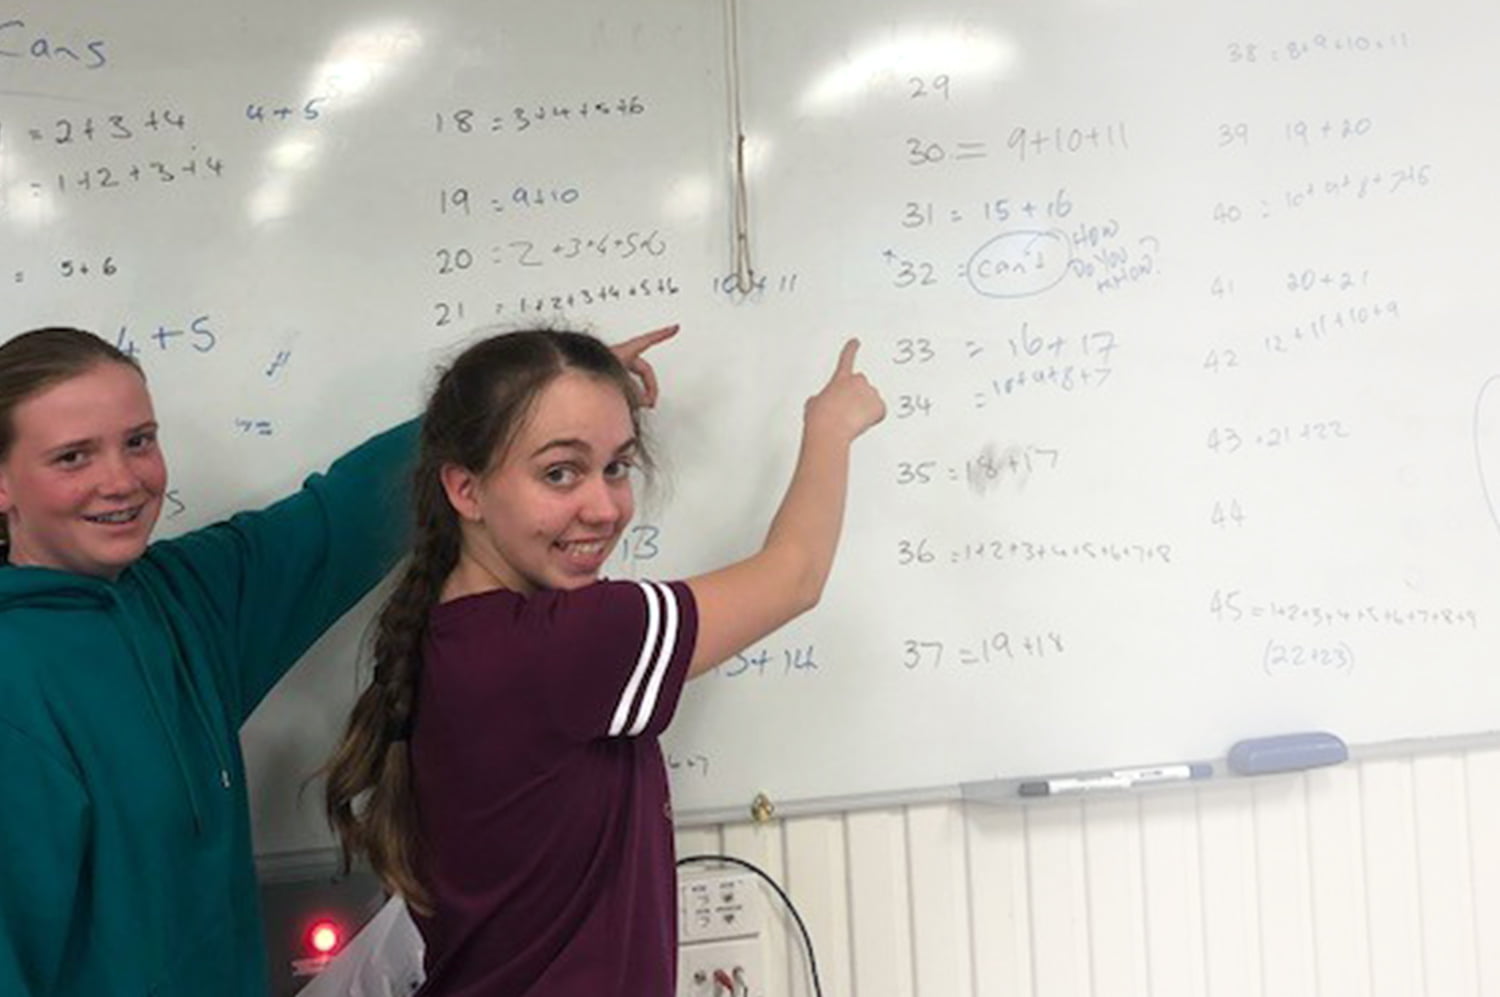 Cans
= 2+3+4 4+5
= 1+2+3+4
= 5+6
4+5
18 = 3+4+5+6
19 = 9+10
20 = 2+3+4+5+6
21 = 1+2+3+4+5+6 10+11
13
+14
29
30 = 9+10+11
31 = 15+16
*32 = can't HOW
DO YOU
KNOW?
33 = 16+17
34 = 10+9+8+7
35 = 18+17
36 = 1+2+3+4+5+6+7+8
37 = 19+18
38 = 8+9+10+11
39 19+20
40 = 10+9+8+7+6
41 20+21
42 12+11+10+9
43 = 21+22
44
45 = 1+2+3+4+5+6+7+8+9
(22+23)